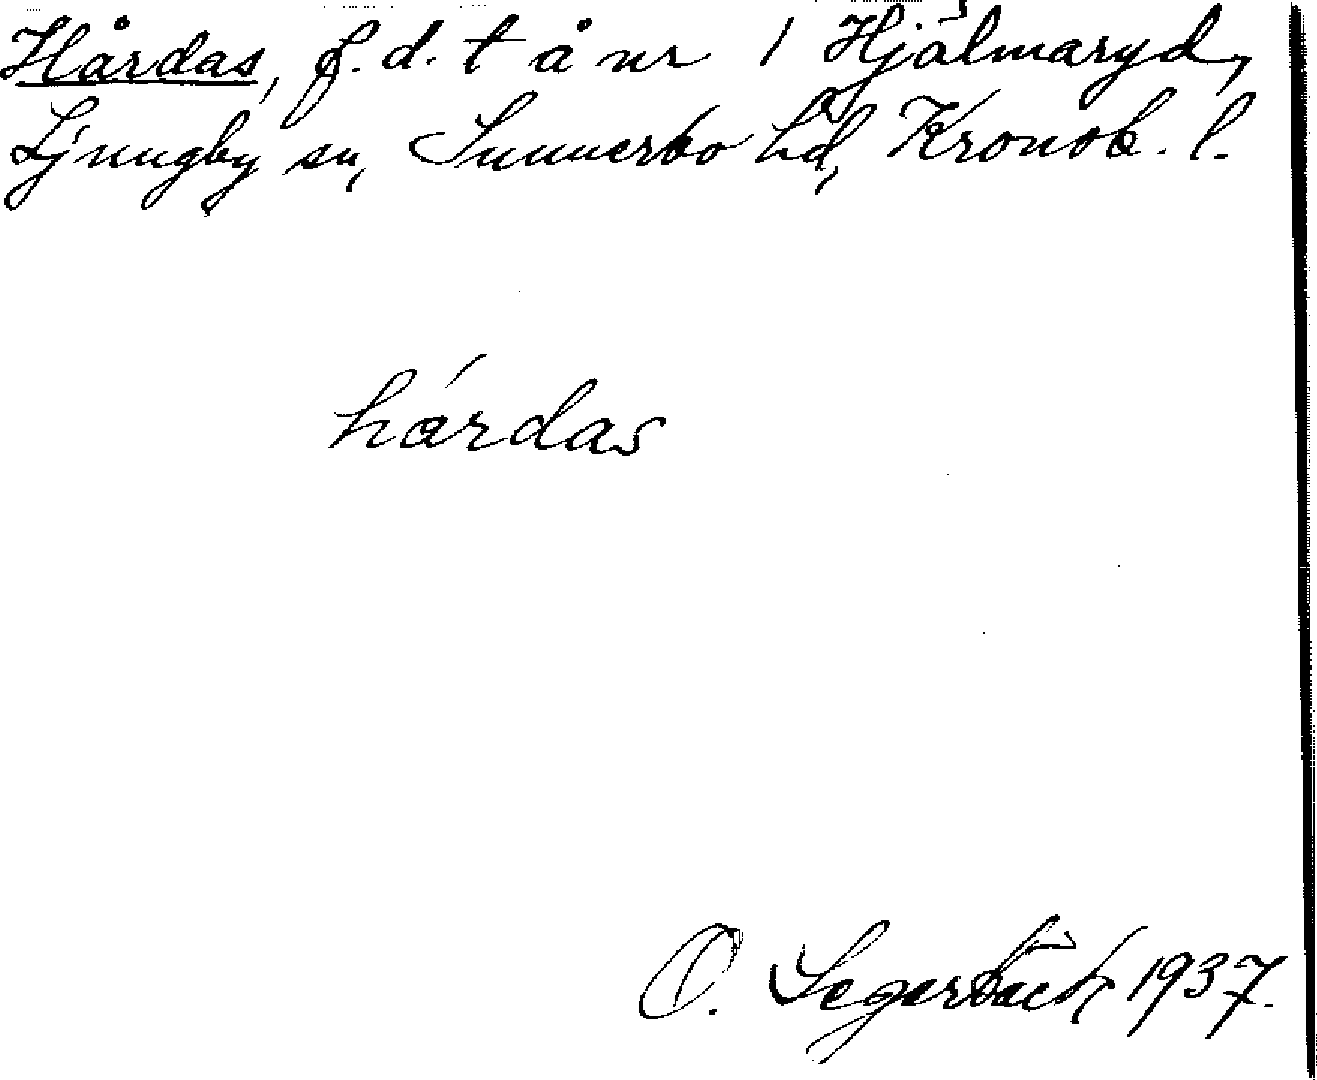 Hårdas, f.d. t å nr 1 Hjälmaryd,
Ljungby sn, Sunnerbo hd, Kronob. l.
hárdas
O. Segerbäck 1937.